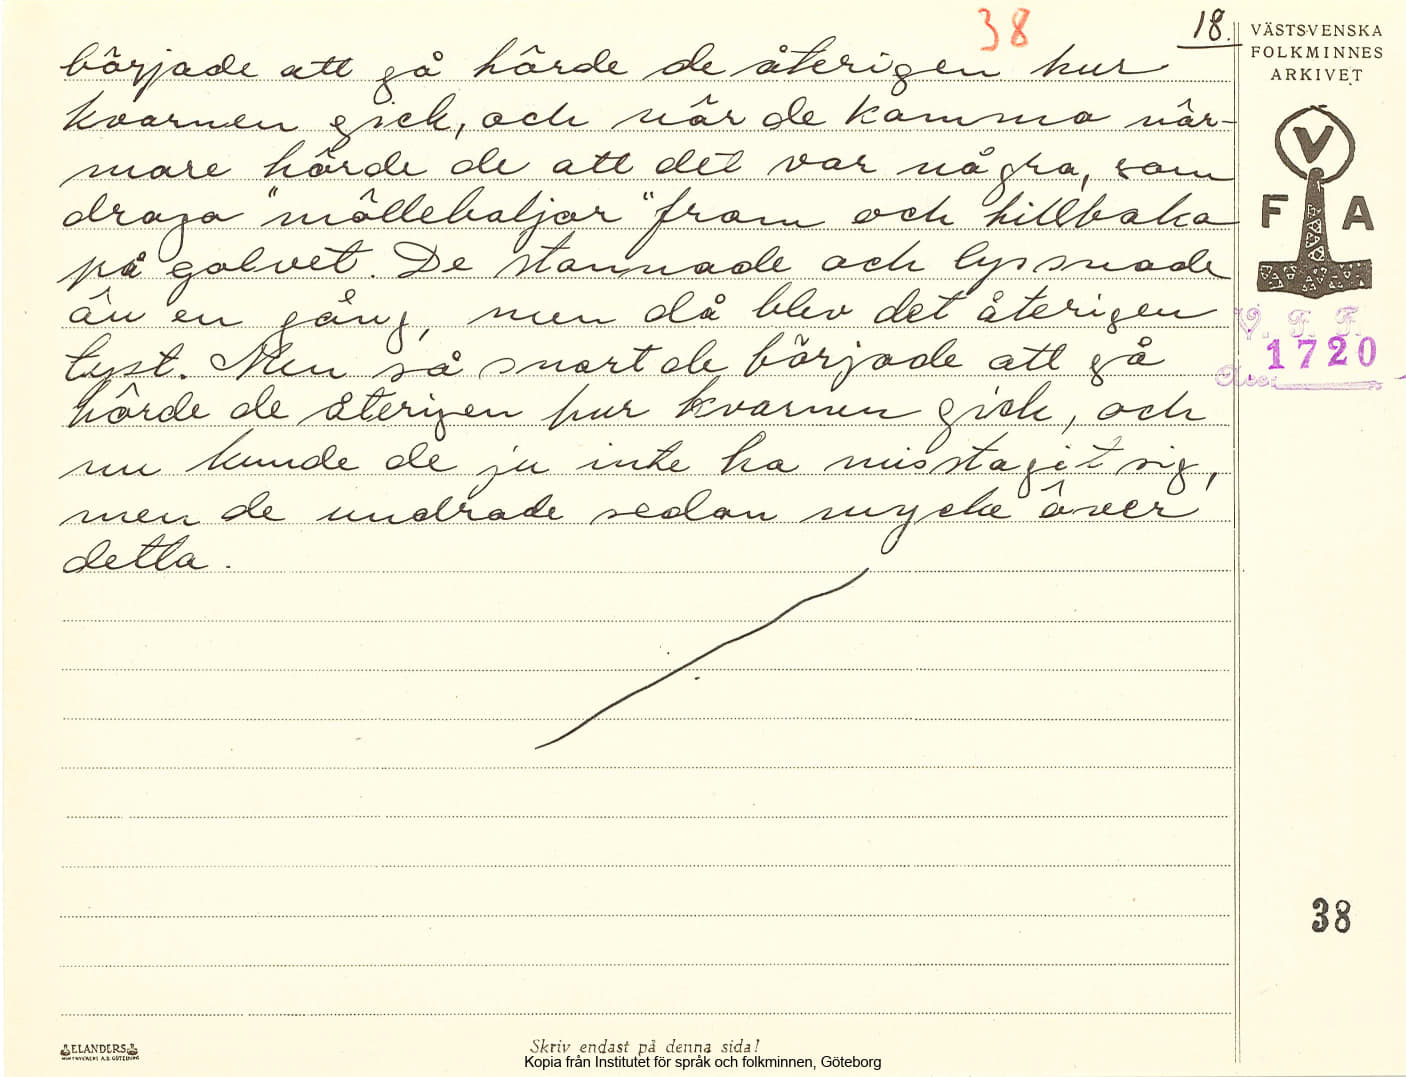 38
18.
VÄSTSVENSKA
FOLKMINNES
ARKIVET
började att gå hörde de återigen hur
kvarnen gick, och när de komma när-
mare hörde de att det var några, som
draga "möllebaljor" fram och tillbaka
på golvet. De stannade och lyssnade
än en gång, men då blev det återigen
tyst. Men så snart de började att gå
hörde de återigen hur kvarnen gick, och
nu kunde de ju inte ha misstagit sig,
men de undrade sedan mycke över
detta.
V
F A
V. F. F.
1720
38
ELANDERS
Skriv endast på denna sida!
Kopia från Institutet för språk och folkminnen, Göteborg